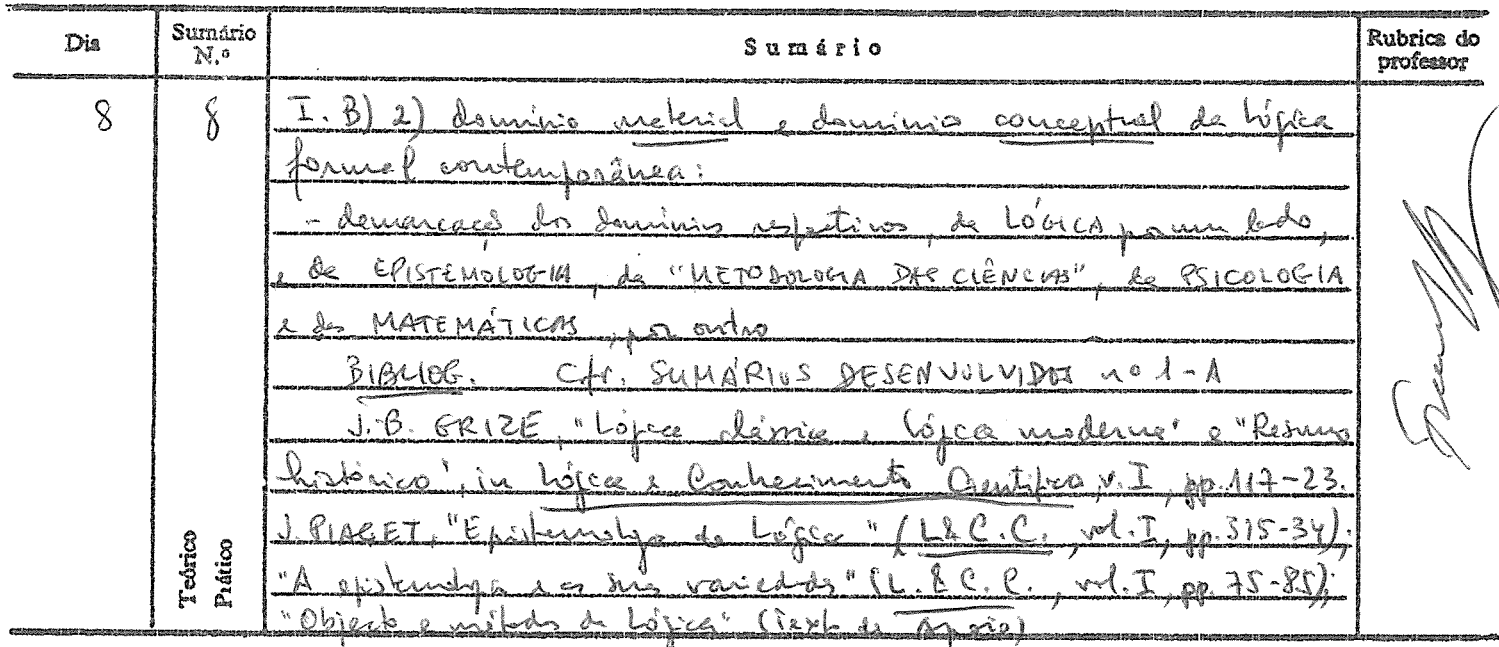 Dia Sumário N.º Sumário Rubrica do professor
8 8 I. B) 2) domínio material e domínio conceptual da Lógica
formal contemporânea:
- demarcação dos domínios respectivos, da LÓGICA por um lado,
e da EPISTEMOLOGIA, da "METODOLOGIA DAS CIÊNCIAS", da PSICOLOGIA
e das MATEMÁTICAS, por outro
BIBLIOG. Cfr. SUMÁRIOS DESENVOLVIDOS nº 1-A
J.-B. GRIZE, "Lógica clássica e lógica moderna" e "Resumo
histórico", in Lógica e Conhecimento Científico, v. I, pp. 117-23.
J. PIAGET, "Epistemologia da Lógica" (L. & C. C., vol. I, pp. 315-34);
"A epistemologia e as suas variedades" (L. & C. C., vol. I, pp. 75-85);
"Objecto e método da Lógica" (Texto de Apoio)
Teórico
Prático